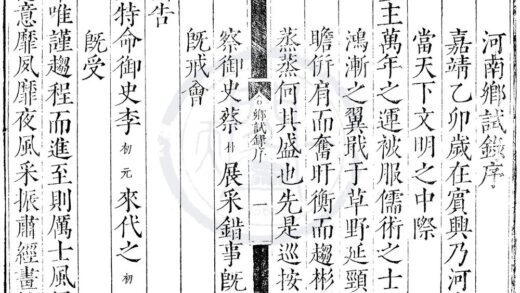 河南鄉試錄序
嘉靖乙卯歲在賓興乃河
當天下文明之中際
主萬年之運被服儒術之士
鴻漸之翼戢于草野延頸
瞻併肩而奮盱衡而趨彬
蒸蒸何其盛也先是巡按
鄉試錄序 一
察御史蔡朴展采錯事旣
旣戒會
告
特命御史李初元來代之初
旣受
唯謹趨程而進至則厲士風
意靡夙靡夜風采振肅經畫